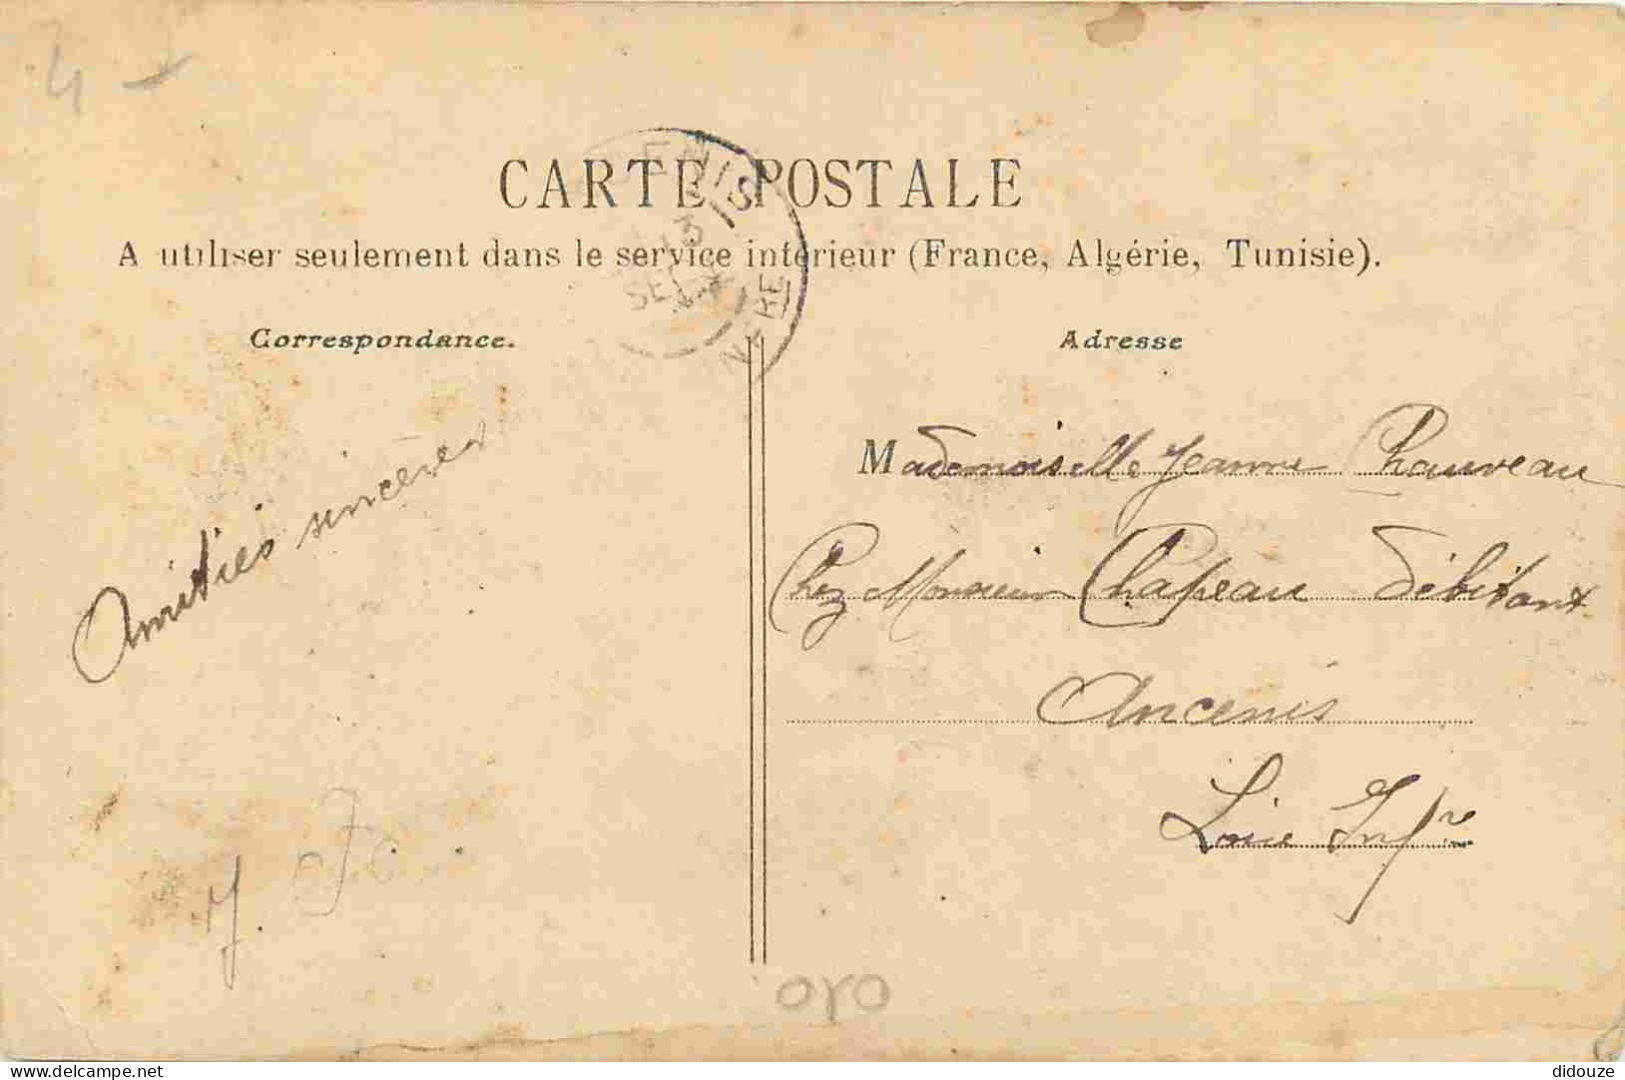 4 -
CARTE POSTALE
A utiliser seulement dans le service intérieur (France, Algérie, Tunisie).
13
Correspondance.
Adresse
Amitiés sincères
Mademoiselle Jeanne Chauveau
Chez Monsieur Chapeau débitant
Ancenis
Loire Infre
delcampe.net
didouze